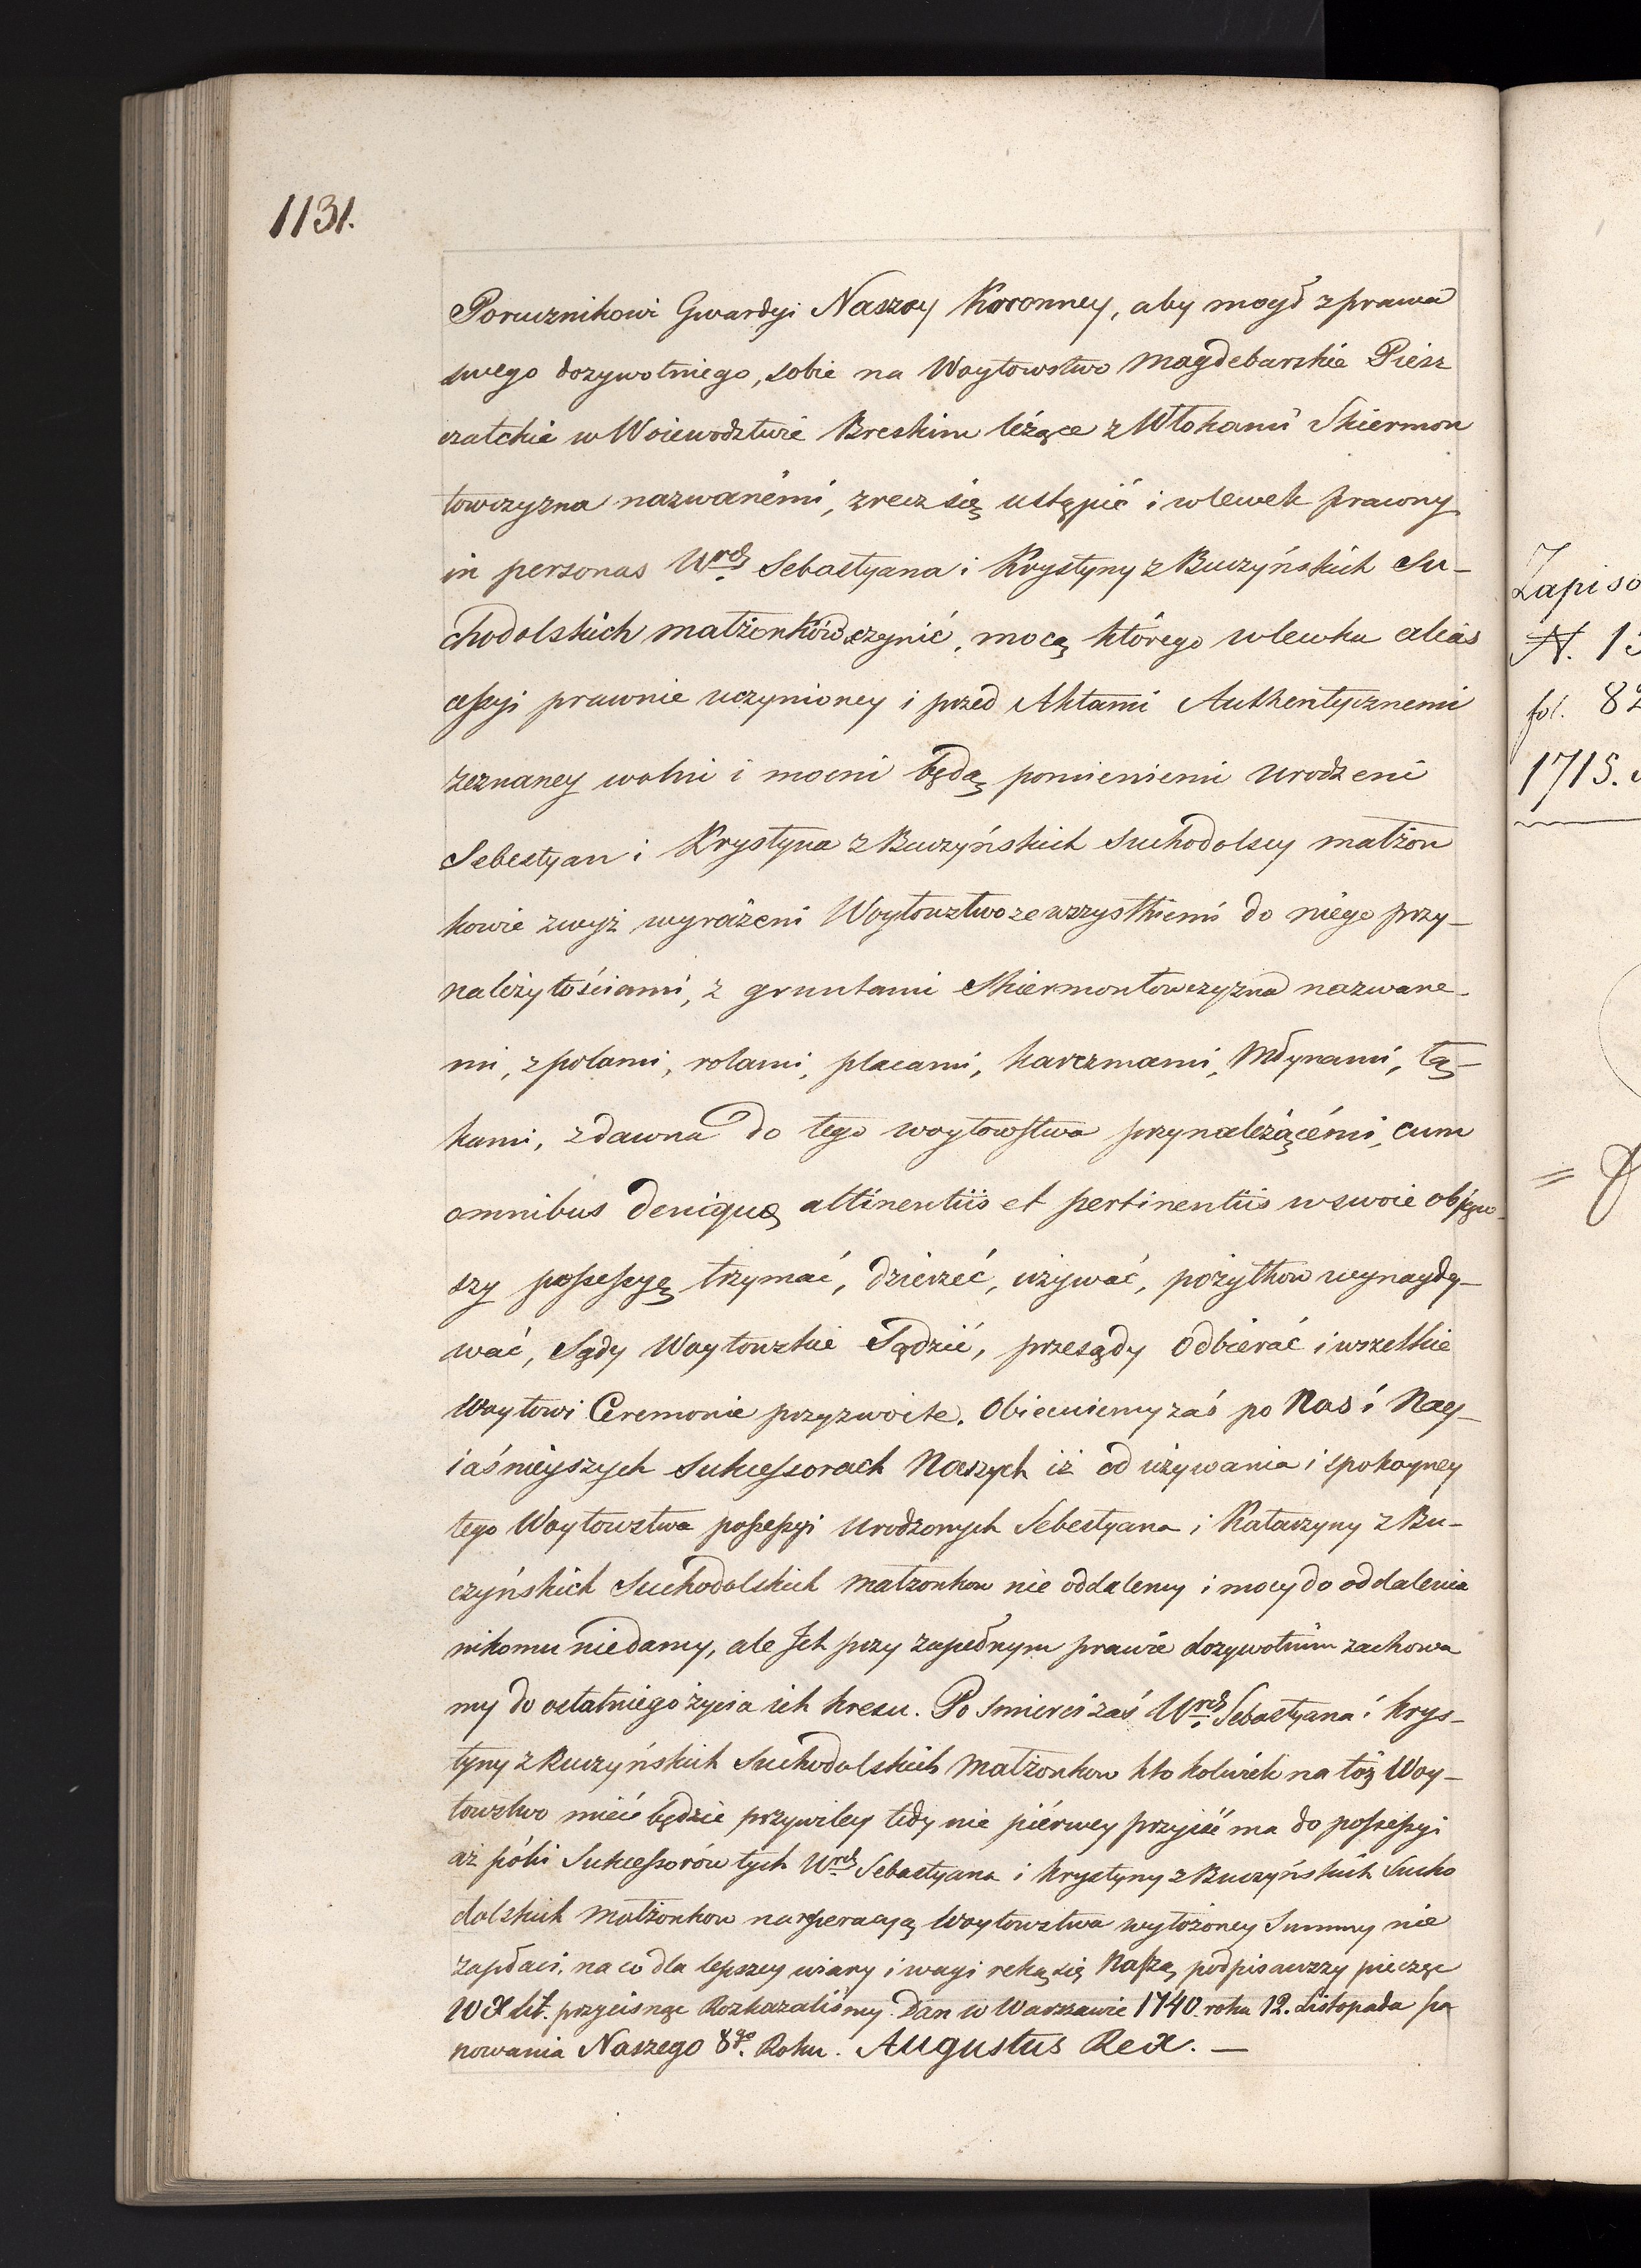 1131.
Porucznikowi Gwardyi Naszey Koronney, aby mogł z prawa
swego dozywotniego, sobie na Woytowstwo Magdeburskie Piesz
czatckie w Woiewodztwie Breskim leżące z Włokami Skiermon
towczyzna nazwanémi, zrzecz się ustąpić i wlewek prawny
in personas Wrch Sebastyana i Krystyny z Buczyńskich Su-
chodolskich małżonków czynić, mocą którego wlewku alias
cessyi prawnie uczynioney i przed Aktami Authentycznemi
zeznaney wolni i mocni będą pomienieni urodzeni
Sebestyan i Krystyna z Buczyńskich Suchodolscy małżon
kowie zwyż wyrażeni Woytowstwo ze wszystkiemi do niego przy-
należytościami, z gruntami Skiermontowczyzna nazwane-
mi, z polami, rolami, placami, karczmami, Młynami, łą-
kami, zdawna do tego woytowstwa przynależącémi, cum
omnibus denique attinentiis et pertinentiis w swoie objąw-
szy possessyę trzymać, dzierzeć, używać, pożytkow wynaydy-
wać, Sądy Woytowskie Sądzić, przesądy odbierać i wszelkie
Woytowi Ceremonie przyzwoite. Obiecuiemy zaś po Nas i Nay-
iaśnieyszych Sukcessorach Naszych iż od używania i spokoyney
tego Woytowstwa possessyi Urodzonych Sebestyana i Katarzyny z Bu-
czyńskich Suchodolskich Małżonkow nie oddalemy i mocy do oddalenia
nikomu niedamy, ale Ich przy zupełnym prawie dozywotnim zachowa
my do ostatniego życia ich kresu. Po Smierci zaś Wrch Sebastyana i Krys-
tyny z Buczyńskich Suchodolskich Małżonkow kto kolwiek na toż Woy-
towstwo mieć będzie przywiley tedy nie piérwey przyiść ma do possessyi
aż póki Sukcessorów tych Wrch Sebastyana i Krystyny z Buczyńskich Sucho
dolskich Małżonkow na reperacyą Woytowstwa wyłożoney Summy nie
zapłaci, na co dla lepszey wiary i wagi ręką się Naszą podpisawszy pieczęć
W X Lit. przycisnąc Rozkazaliśmy. Dan w Warszawie 1740 roku 12. Listopada pa
nowania Naszego 8go. Roku. Augustus Rex. —
Zapiso
N. 13
fol. 82
1715.